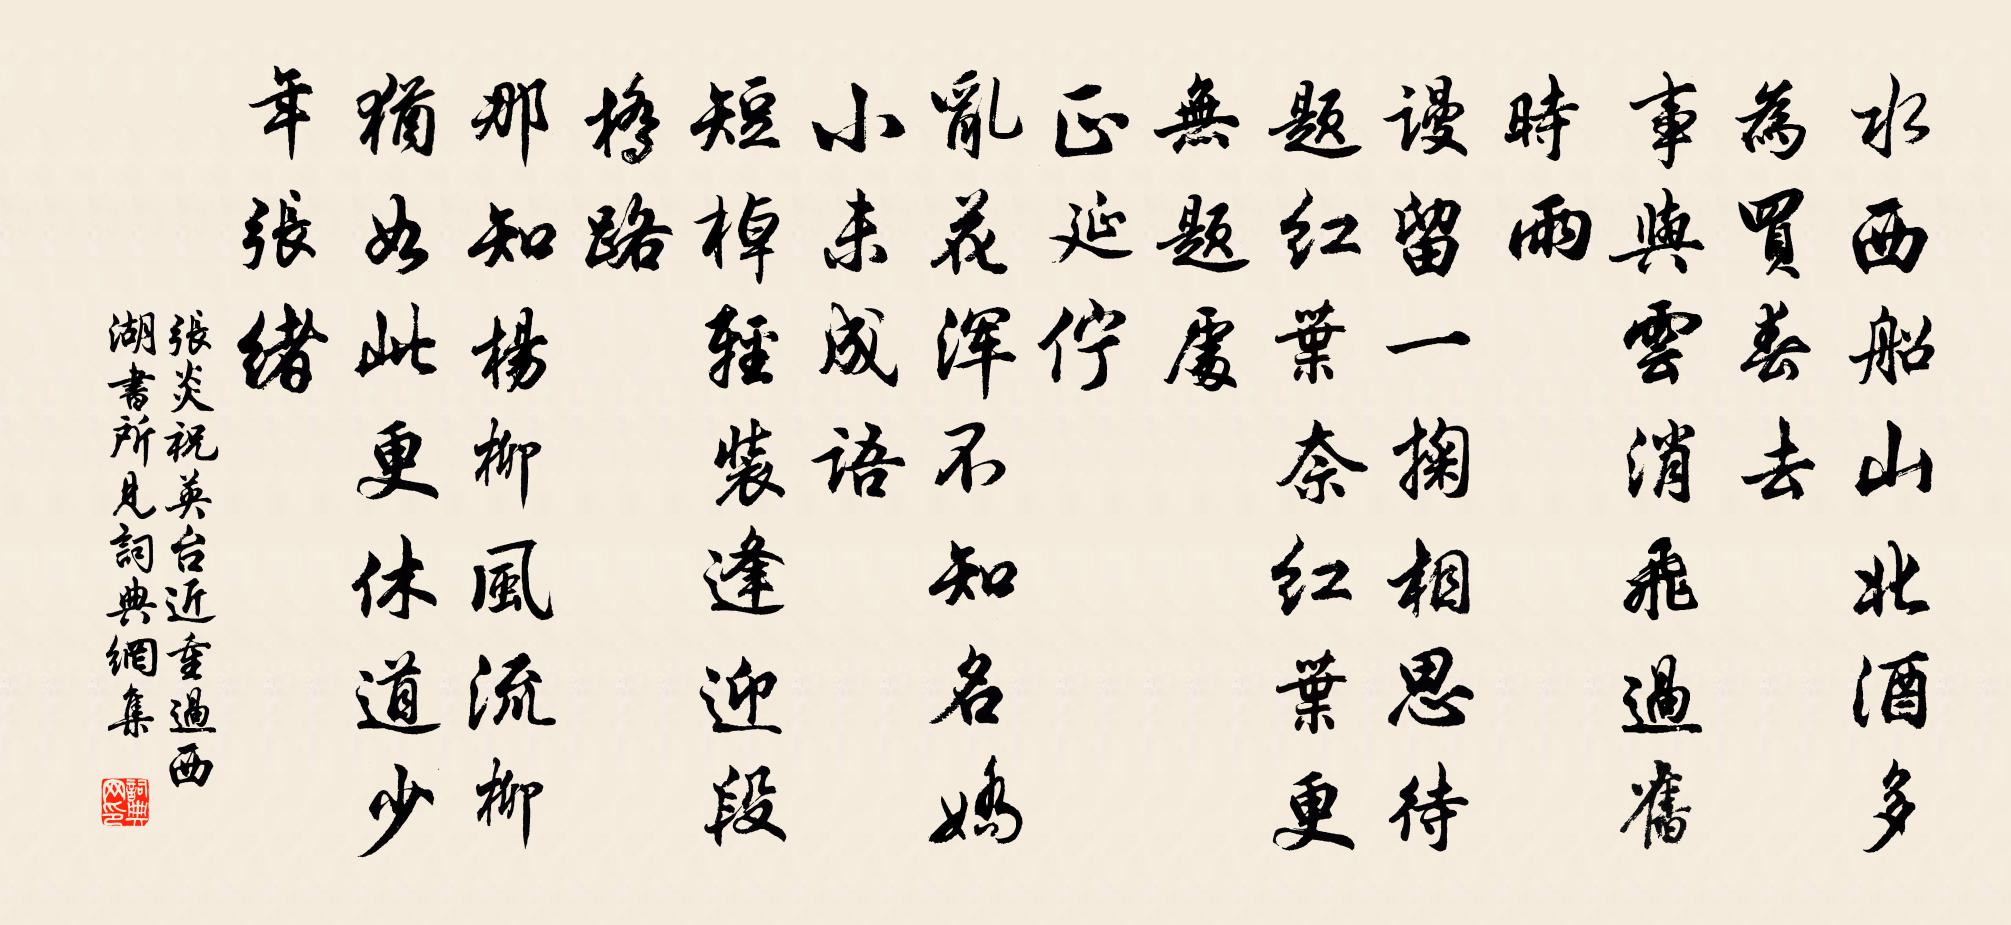 水西船山北酒多
為買春去
事與雲消飛過舊
時雨
謾留一掬相思待
題紅葉奈紅葉更
無題處
正延佇
亂花渾不知名嬌
小未成語
短棹輕裝逢迎段
橋路
那知楊柳風流柳
猶如此更休道少
年張緒
張炎祝英台近重過西
湖書所見詞典網集
詞典網印